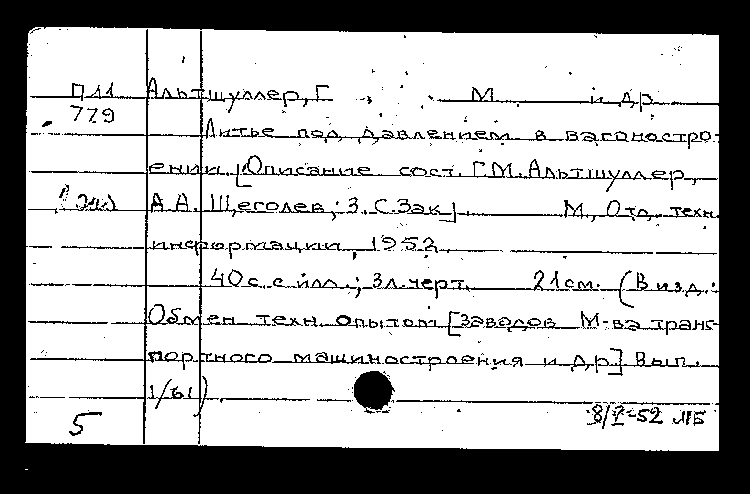 П11 Альтшуллер, Г. М. и др.
779
Литье под давлением в вагоностро-
ении. [Описание сост. Г.М. Альтшуллер,
1 экз А.А. Щеголев, З. С. Зак]. М., Отд. техн.
информации, 1952.
40 с. с илл.; 3 л. черт. 21 см. (В изд.:
Обмен техн. опытом [заводов М-ва транс-
портного машиностроения и др.] Вып.
1/61).
5 8/I-52 МБ